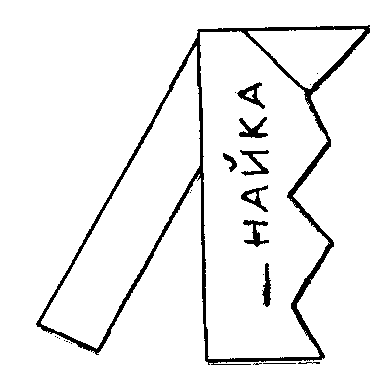 — НАЙКА